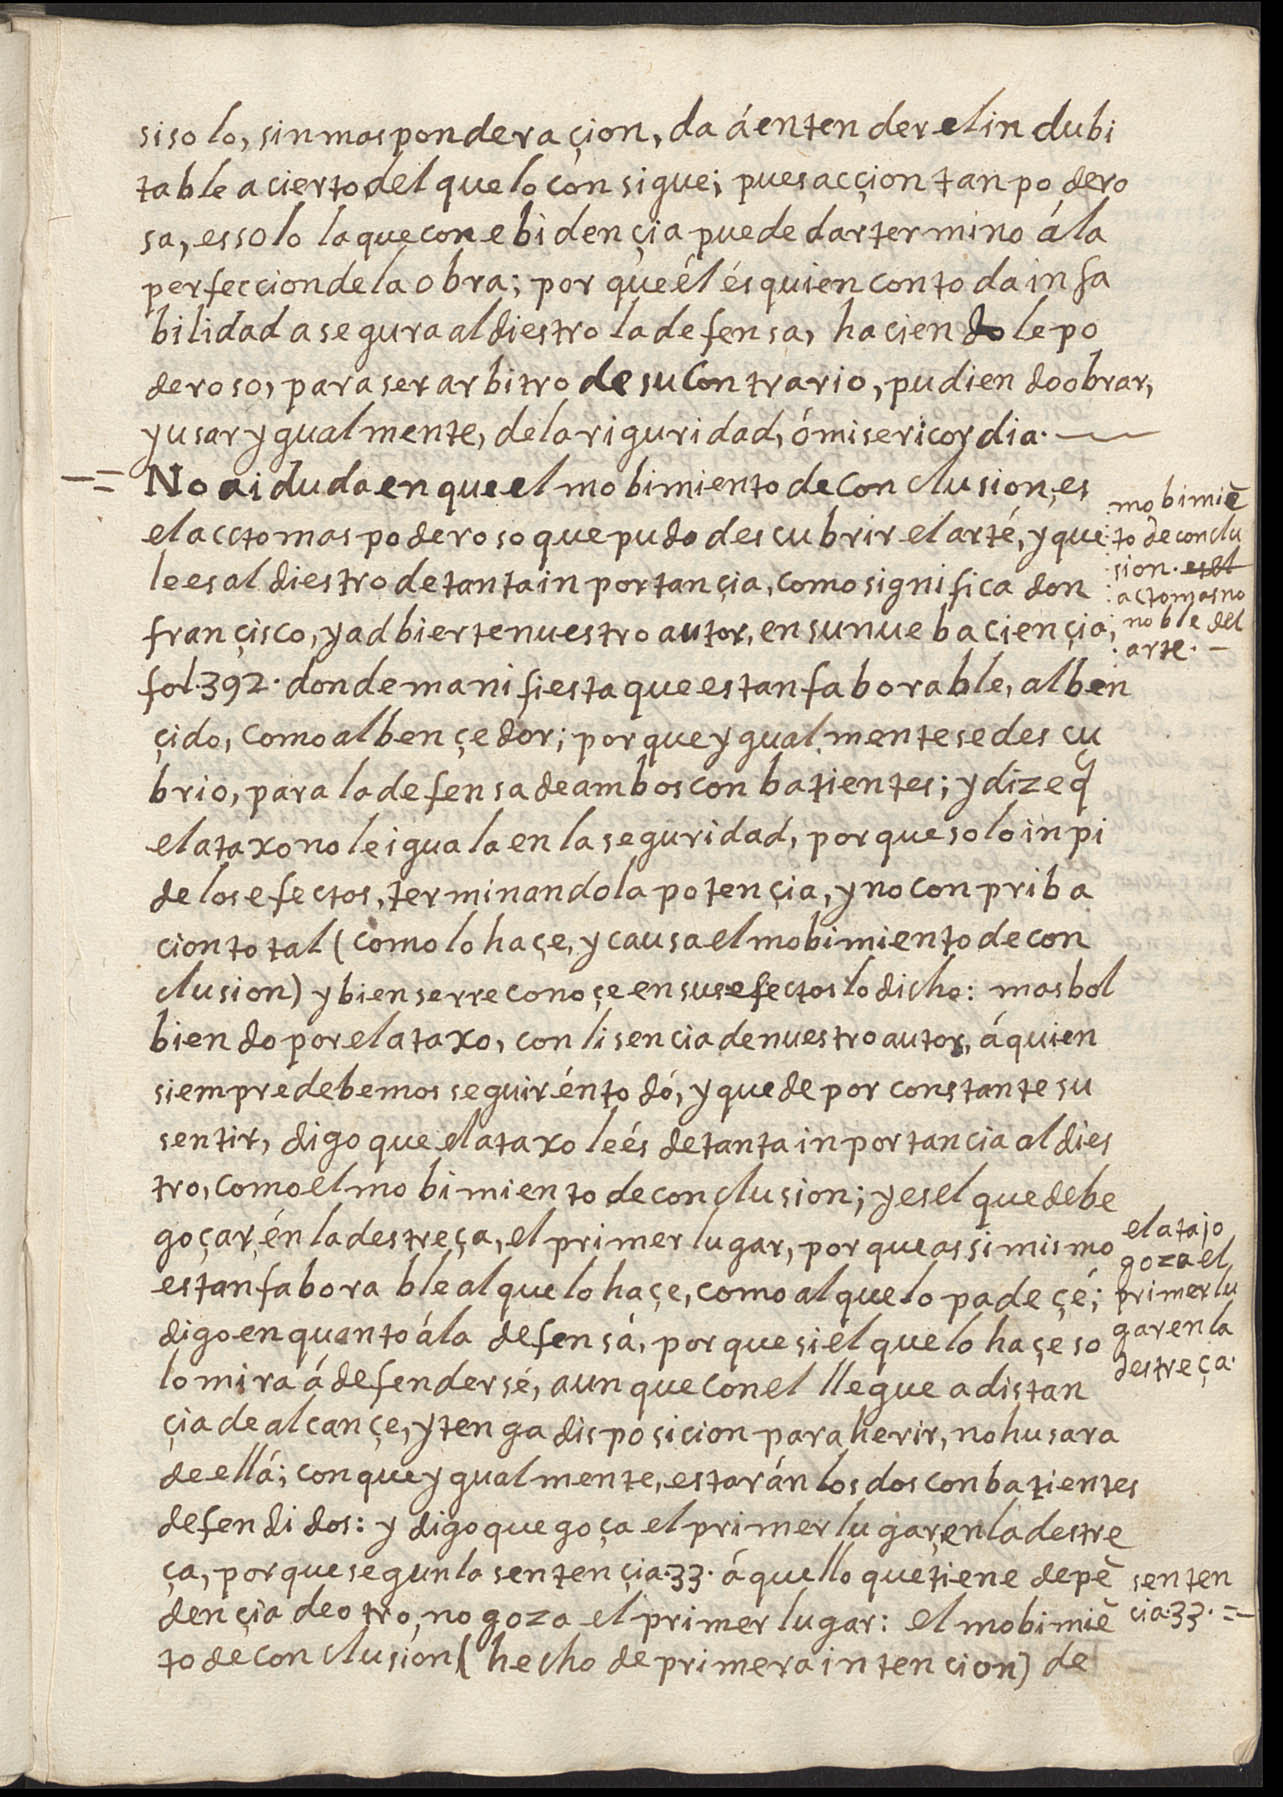 si solo, sin mas ponderaçion, da á entender el indubi
table acierto del que lo consigue; pues acçion tan podero
sa, es solo la que con ebidençia puede dar termino á la
perfeccion de la obra; por que él és quien con toda infa
bilidad asegura al diestro la defensa, haciendole po
deroso, para ser arbitro de su contrario, pudiendo obrar,
y usar ygualmente, de la riguridad, ó misericordia.
No ai duda en que el mobimiento de conclusion, es
el accto mas poderoso que pudo descubrir el arté, y que
le es al diestro de tanta inportançia, como significa don
françisco, y adbierte nuestro autor, en su nueba ciençia,
fol. 392. donde manifiesta que es tan faborable, al ben
çido, como al bençedor; porque ygualmente se descu
brio, para la defensa de ambos conbatientes; y dize q̃
el ataxo no le iguala en la seguridad, porque solo inpi
de los efectos, terminando la potençia, y no con priba
cion total (como lo haçe, y causa el mobimiento de con
clusion) y bien se rreconoçe en sus efectos lo dicho: mas bol
biendo por el ataxo, con lisencia de nuestro autor, á quien
siempre debemos seguir én todó, y quede por constante su
sentir, digo que el ataxo le és de tanta inportancia al dies
tro, como el mobimiento de conclusion; y es el que debe
goçar, én la destreça, el primer lugar, por que assi mismo
es tan faborable al que lo haçe, como al que lo padeçé;
digo en quanto á la defensá, porque si él que lo haçe so
lo mira á defendersé, aunque con el llegue a distan
çia de alcançe, y tenga disposicion para herir, no husara
de ellá; con que ygualmente, estarán los dos conbatientes
defendidos: y digo que goça el primer lugar, en la destre
ça, porque segun la sentençia. 33. áquello que tiene depē
dençia de otro, no goza el primer lugar: el mobimiē
to de conclusion (hecho de primera intencion) de
mobimiē
to de conclu
sion. es el
acto mas no
ble del
arte.
el atajo
goza el
primer lu
gar en la
destreça.
senten
cia. 33.